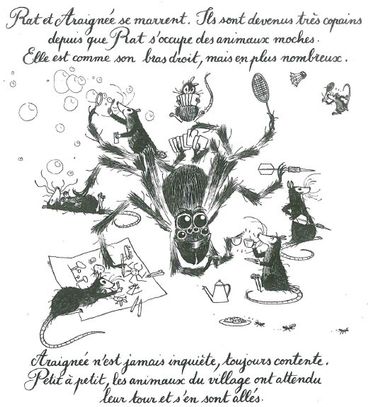 Rat et Araignée se marrent. Ils sont devenus très copains
depuis que Rat s'occupe des animaux moches.
Elle est comme son bras droit, mais en plus nombreux.
Araignée n'est jamais inquiète, toujours contente.
Petit à petit, les animaux du village ont attendu
leur tour et s'en sont allés.